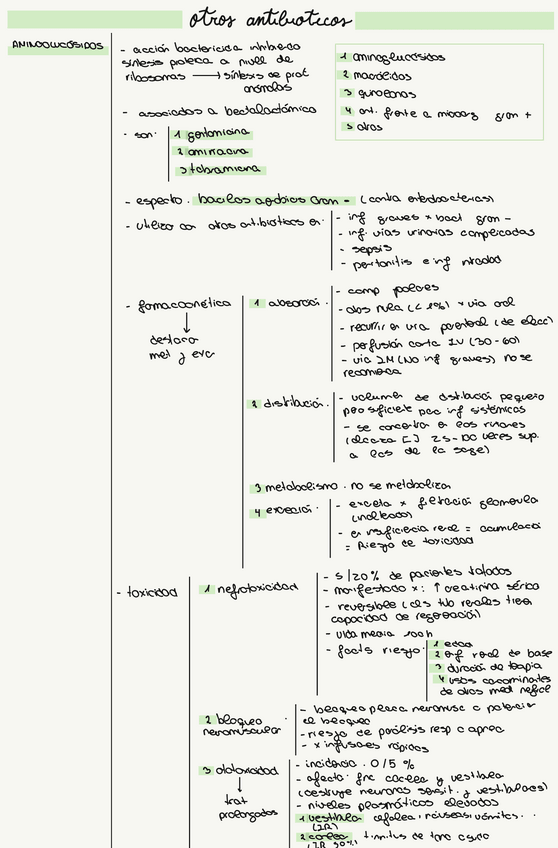 otros antibioticos
AMINOGLUCÓSIDOS
- acción bactericida inhibiendo
síntesis proteica a nivel de
ribosomas → síntesis de prot
anómalas
1 aminoglucósidos
2 macrólidos
3 quinolonas
4 ant. frente a microorg gram +
5 otros
- asociados a betalactámico
- son:
1 gentamicina
2 amikacina
3 tobramicina
- espectro. bacilos aerobios Gram - (contra enterobacterias)
- utilizo con otros antibióticos en.
- inf graves x bact gram -
- inf. vias urinarias complicadas
- sepsis
- peritonitis e inf intrabd
- farmacocinética
↓
destaca
met y exc
1 absorción.
- comp polares
- abs nula (< 1%) x via oral
- recurrir a via parenteral (de elecc)
- perfusión corta IV (30-60)
- via IM (No inf graves) no se
recomienda
2 distribución.
- volumen de distribución pequeño
pero suficiente para inf sistémicas
- se concentra en los riñones
(alcanza [ ] 25-100 veces sup.
a las de la sangre)
3 metabolismo. no se metabolizan
4 excreción.
- excreta x filtración glomerular
(inalterados)
- en insuficiencia renal = acumulación
= Riesgo de toxicidad
- toxicidad
1 nefrotoxicidad
- 5/20% de pacientes tratados
- manifestado x: ↑ creatinina sérica
- reversible (cls tub renales tienen
capacidad de regeneración)
- vida media 100h
- facts riesgo:
1 edad
2 inf renal de base
3 duración de terapia
4 usos concomitantes
de otros med nefrot
2 bloqueo
neuromuscular
- bloqueo placa neuromusc o potenciar
el bloqueo
- riesgo de parálisis resp o apnea
- x infusiones rápidas
3 ototoxicidad
↓
trat
prolongados
- incidencia. 0/5 %
- afecta. fnc coclear y vestibular
(destruye neuronas sensit. y vestibulares)
- niveles plasmáticos elevados
1 vestibular cefalea, náuseas, vómitos..
(IR)
2 coclear tinnitus de tono agudo
(IR 50%)